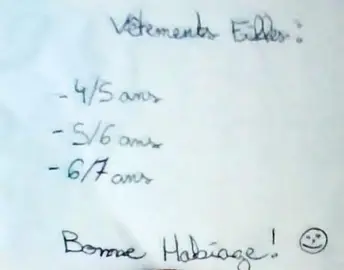 Vêtements Filles :
- 4/5 ans
- 5/6 ans
- 6/7 ans
Bonne Habiage !